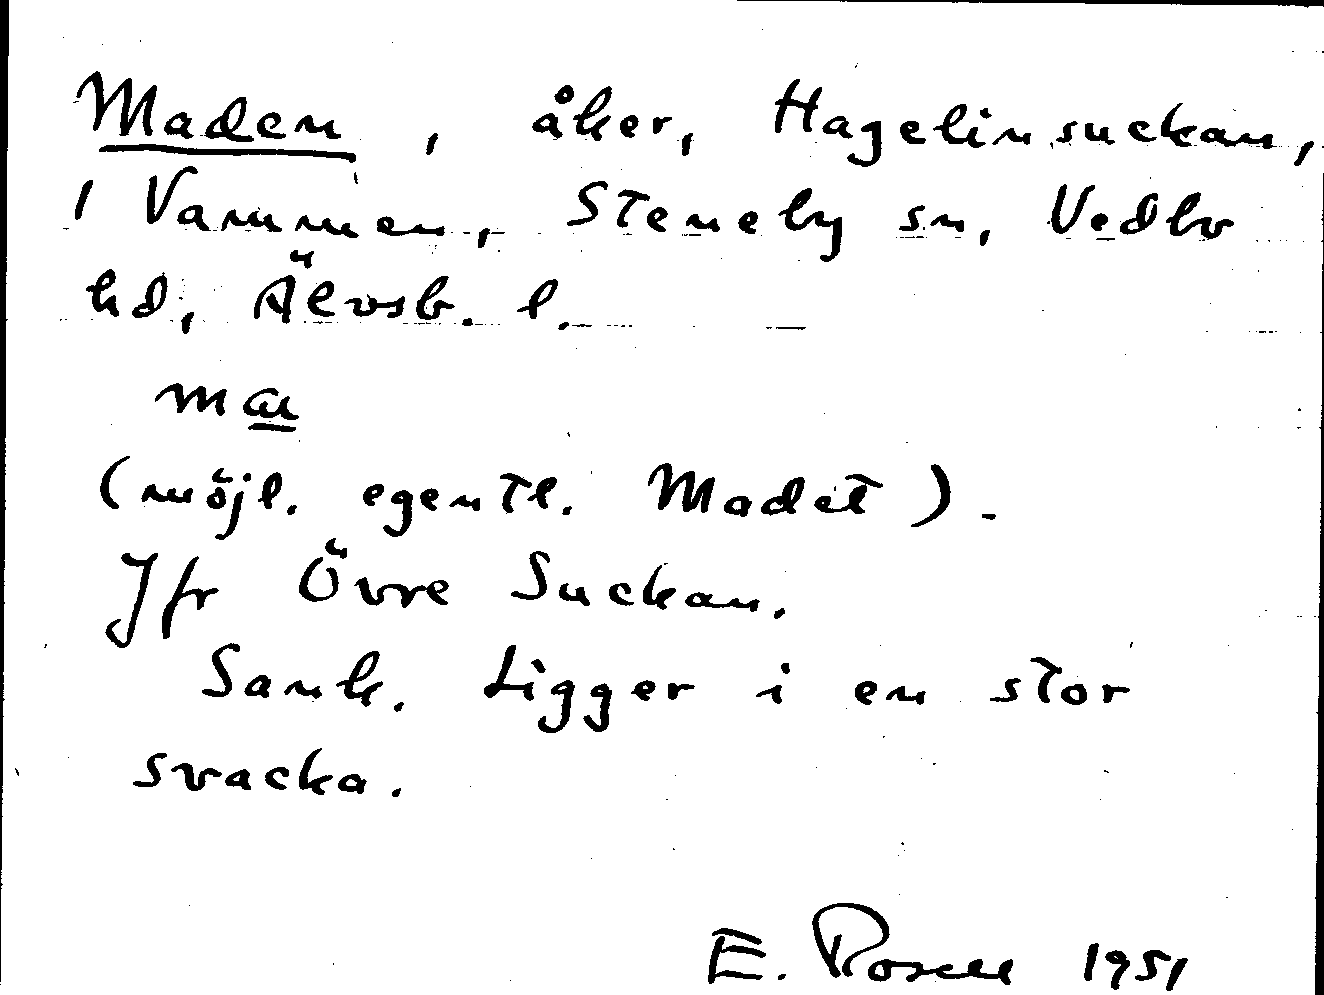 Maden, åker, Hagelinsuckan,
1 Vammen, Steneby sn, Vedbo
hd, Älvsb. l.
(möjl. egentl. Madet).
Jfr Övre Suckan.
Sank. Ligger i en stor
svacka.
E. Rosell 1951